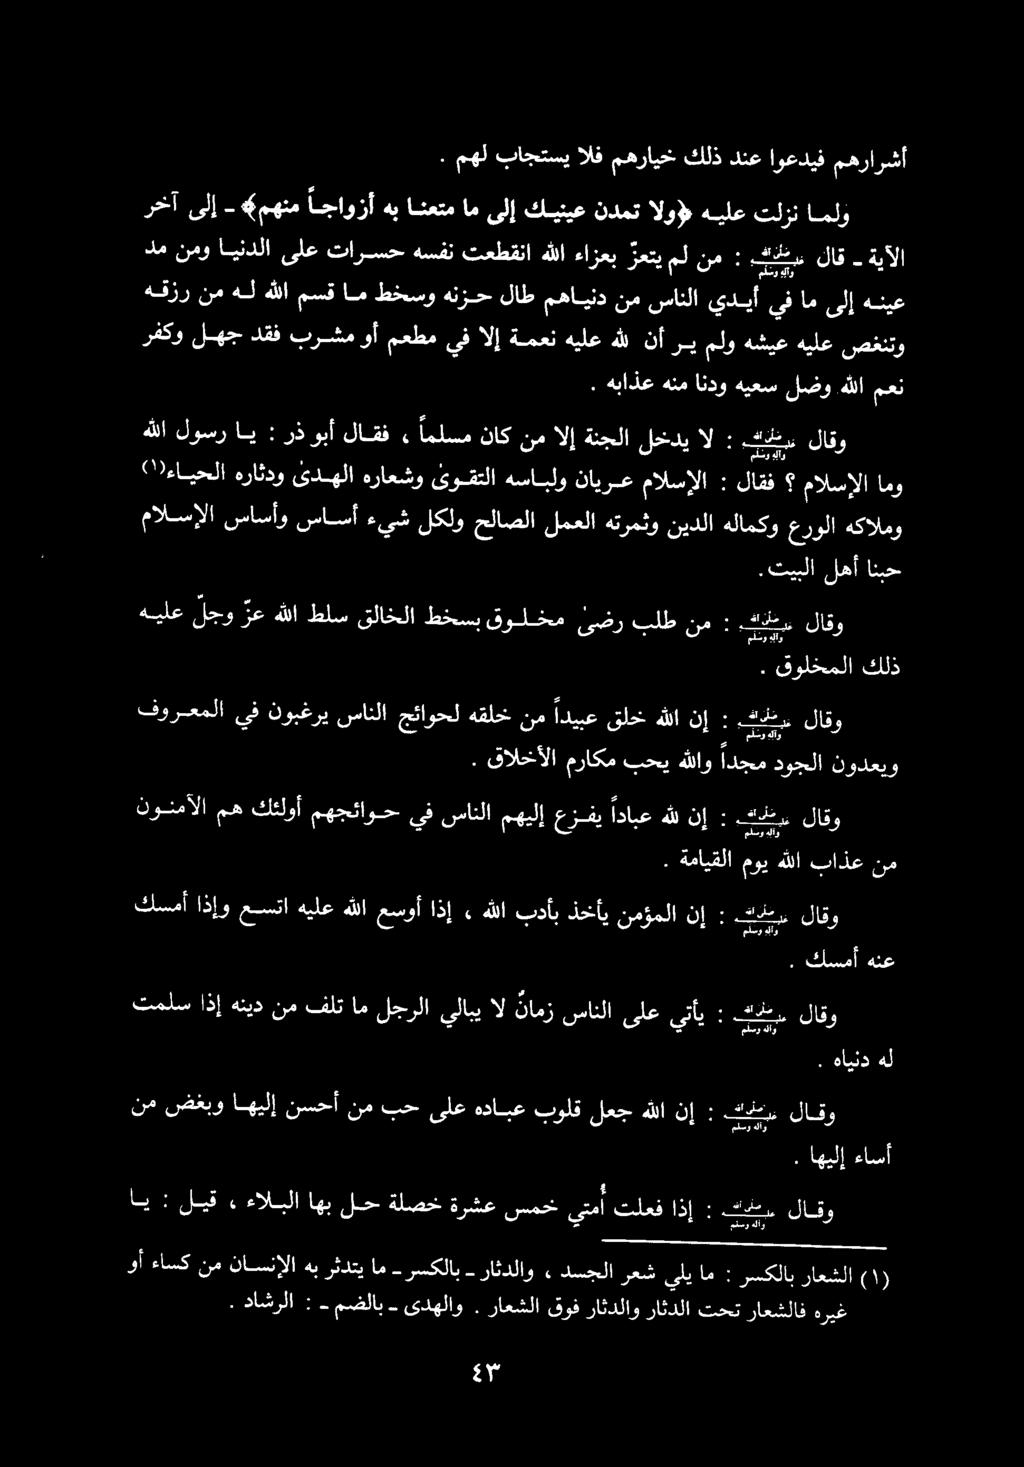 أشرارهم فيدعوا عند ذلك خيارهم فلا يستجاب لهم .
ولما نزلت عليه ﴿ولا تمدن عينيك إلى ما متعنا به أزواجاً منهم﴾ - إلى آخر
الآية - قال صلى الله عليه وآله وسلم : من لم يتعزّ بعزاء الله انقطعت نفسه حسرات على الدنيا ومن مد
عينه إلى ما في أيدي الناس من دنياهم طال حزنه وسخط ما قسم الله له من رزقه
وتنغص عليه عيشه ولم ير أن لله عليه نعمة إلا في مطعم أو مشرب فقد جهل وكفر
نعم الله وضل سعيه ودنا منه عذابه .
وقال صلى الله عليه وآله وسلم : لا يدخل الجنة إلا من كان مسلماً ، فقال أبو ذر : يا رسول الله
وما الإسلام ؟ فقال : الإسلام عريان ولباسه التقوىٰ وشعاره الهدىٰ ودثاره الحياء(١)
وملاكه الورع وكماله الدين وثمرته العمل الصالح ولكل شيء أساس وأساس الإسلام
حبنا أهل البيت .
وقال صلى الله عليه وآله وسلم : من طلب رضىٰ مخلوق بسخط الخالق سلط الله عزّ وجلّ عليه
ذلك المخلوق .
وقال صلى الله عليه وآله وسلم : إن الله خلق عبيداً من خلقه لحوائج الناس يرغبون في المعروف
ويعدون الجود مجداً والله يحب مكارم الأخلاق .
وقال صلى الله عليه وآله وسلم : إن لله عباداً يفزع إليهم الناس في حوائجهم أولئك هم الآمنون
من عذاب الله يوم القيامة .
وقال صلى الله عليه وآله وسلم : إن المؤمن يأخذ بأدب الله ، إذا أوسع الله عليه اتسع وإذا أمسك
عنه أمسك .
وقال صلى الله عليه وآله وسلم : يأتي على الناس زمانٌ لا يبالي الرجل ما تلف من دينه إذا سلمت
له دنياه .
وقال صلى الله عليه وآله وسلم : إن الله جعل قلوب عباده على حب من أحسن إليها وبغض من
أساء إليها .
وقال صلى الله عليه وآله وسلم : إذا فعلت أُمتي خمس عشرة خصلة حل بها البلاء ، قيل : يا
(١) الشعار بالكسر : ما يلي شعر الجسد ، والدثار - بالكسر - ما يتدثر به الإنسان من كساء أو
غيره فالشعار تحت الدثار والدثار فوق الشعار . والهدى - بالضم - : الرشاد .
٤٣